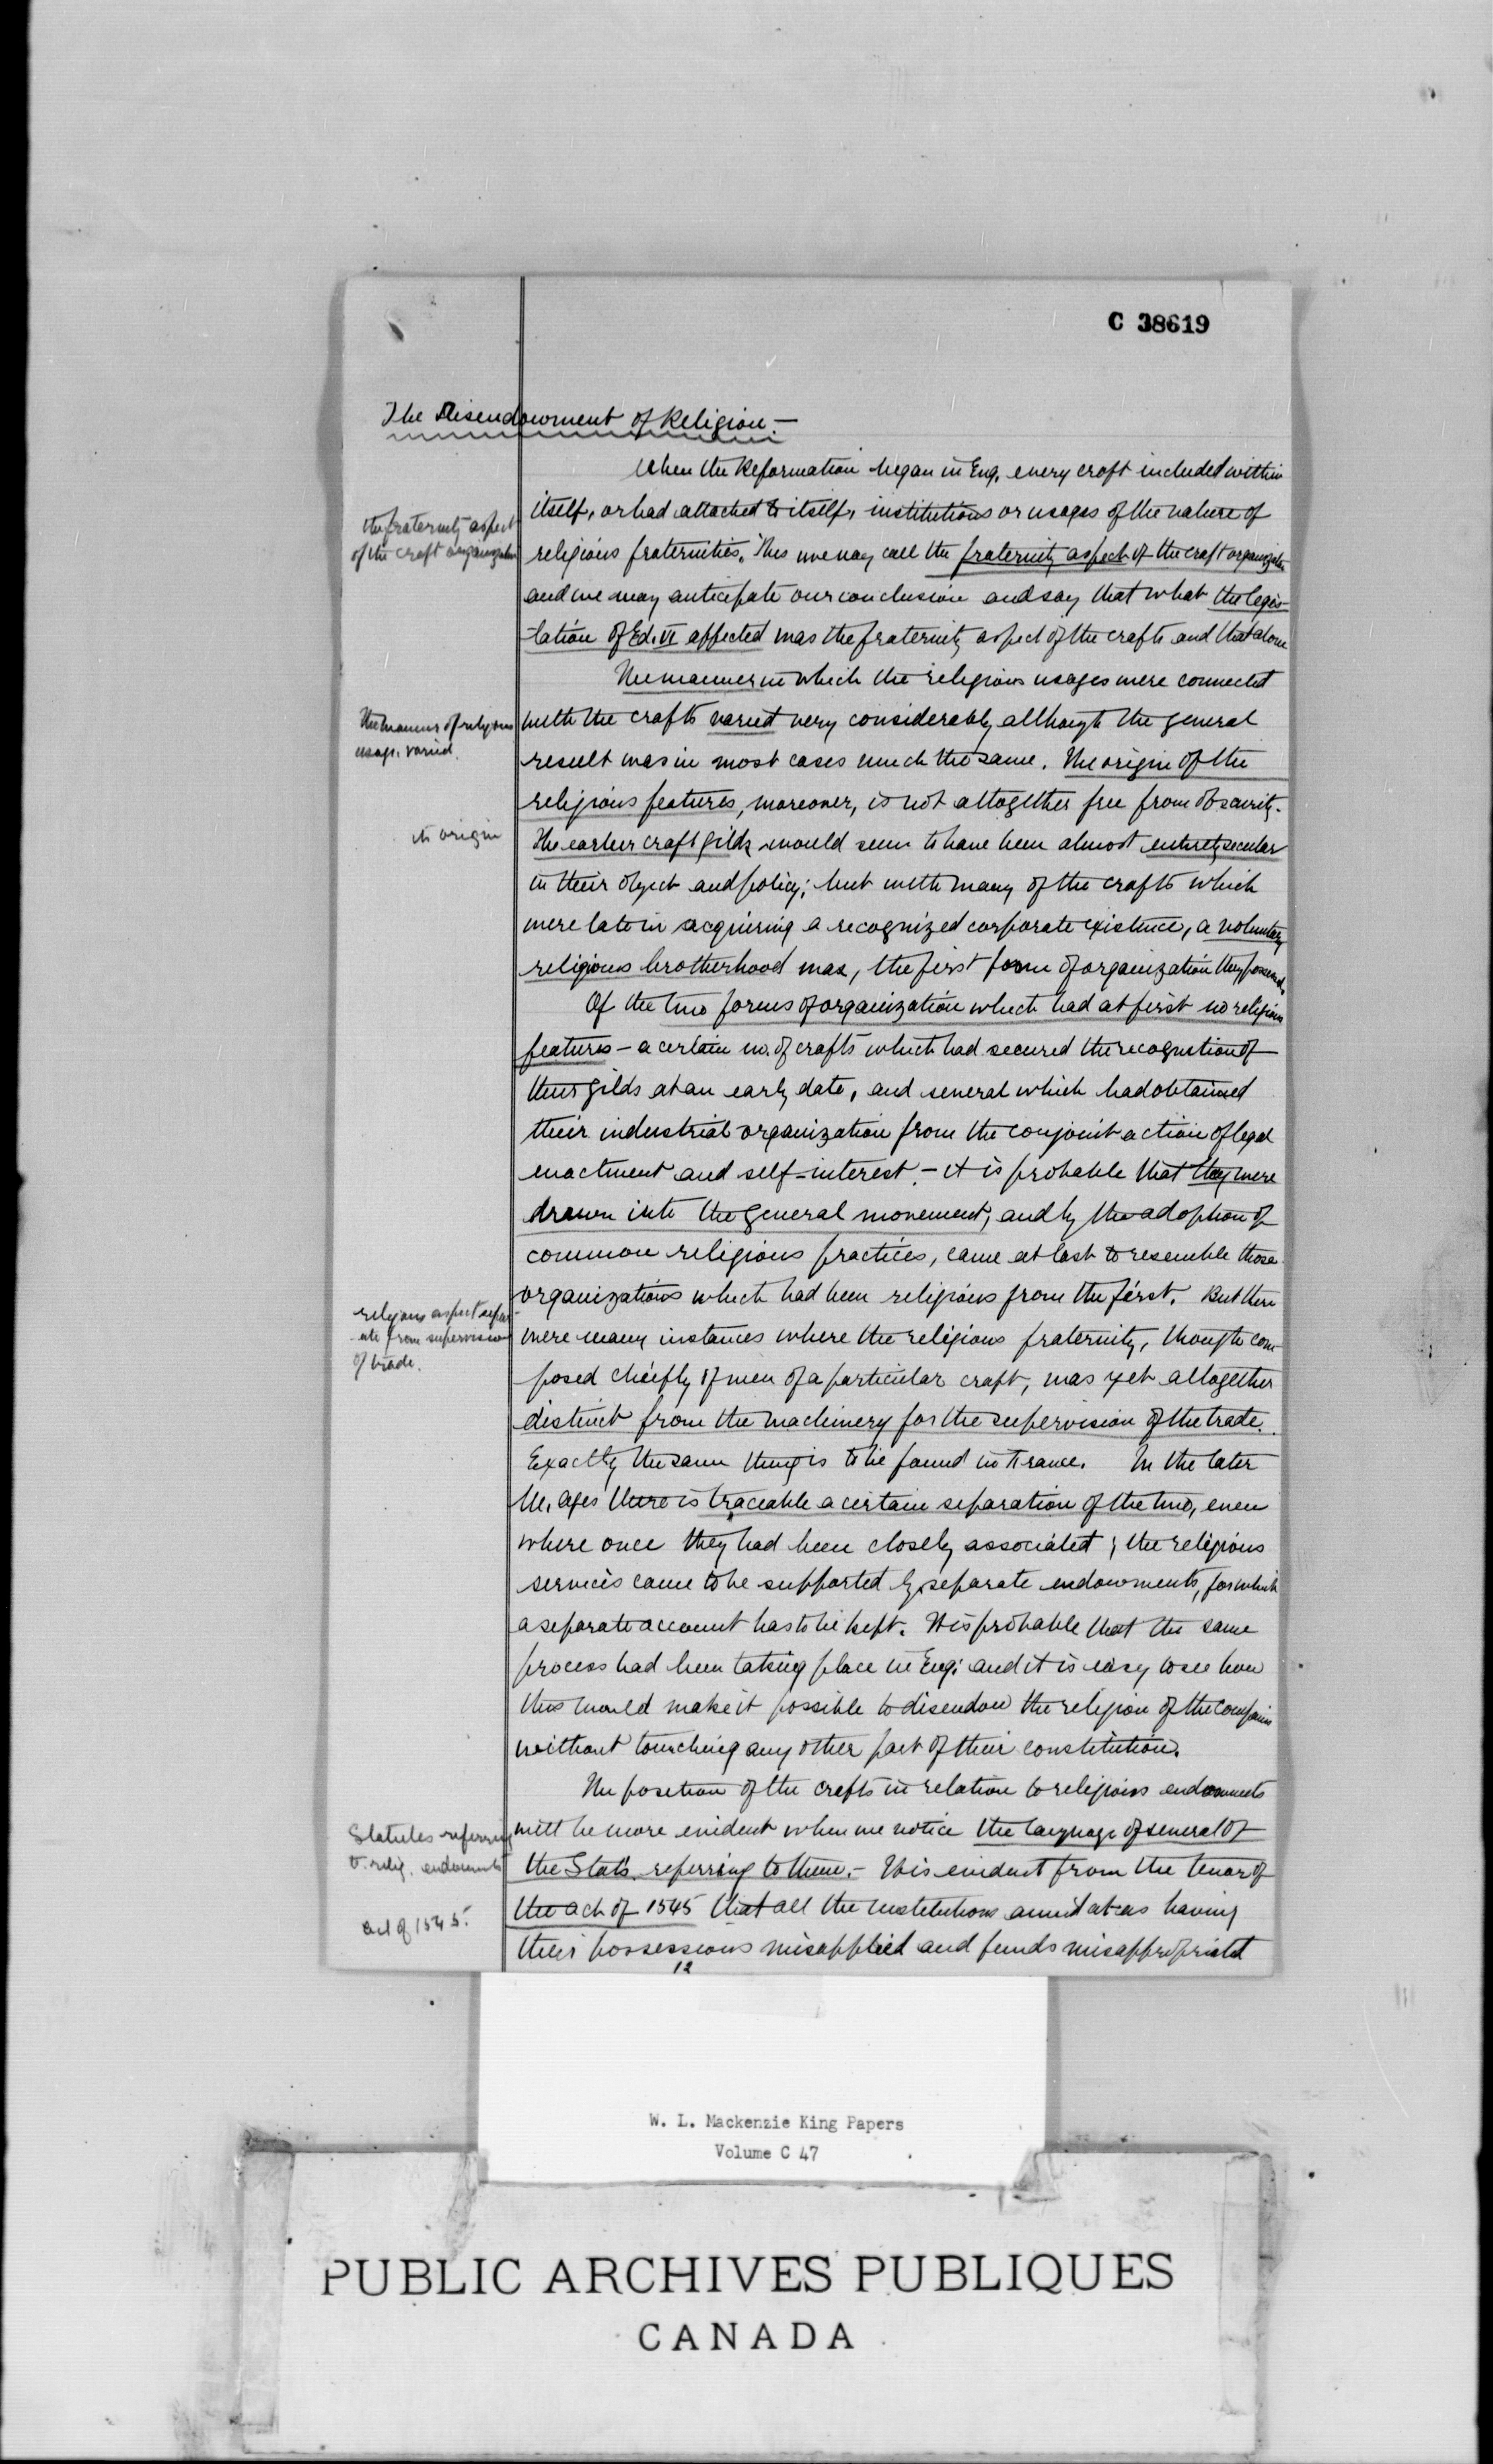 C 38619
The Disendowment of Religion.—
When the Reformation began in Eng. every craft included within
the fraternity aspect
of the craft organization
itself, or had attached to itself, institutions or usages of the nature of
religious fraternities. This we may call the fraternity aspect of the craft organization
and we may anticipate our conclusion and say that what the legis-
lation of Ed. VI affected was the fraternity aspect of the crafts and that alone
The manner in which the religious usages were connected
The manner of religious
usage varied.
with the crafts varied very considerably although the general
result was in most cases much the same. The origin of the
religious features, moreover, is not altogether free from obscurity.
its origin
The earlier craft gilds would seem to have been almost entirely secular
in their object and policy; but with many of the crafts which
were late in acquiring a recognized corporate existence, a voluntary
religious brotherhood was, the first form of organization they possessed
Of the two forms of organization which had at first no religious
features — a certain no. of crafts which had secured the recognition of
their gilds at an early date, and several which had obtained
their industrial organization from the conjoint action of legal
enactment and self-interest. — it is probable that they were
drawn into the general movement, and by the adoption of
common religious practices, came at last to resemble those
organizations which had been religious from the first. But there
religious aspect separ-
ate from supervision
of trade.
were many instances where the religious fraternity, though com-
posed chiefly of men of a particular craft, was yet altogether
distinct from the machinery for the supervision of the trade.
Exactly the same thing is to be found in France. In the later
M. Ages there is traceable a certain separation of the two, even
where once they had been closely associated; the religious
services came to be supported by separate endowments, for which
a separate account has to be kept. It is probable that the same
process had been taking place in Eng. and it is easy to see how
this would make it possible to disendow the religion of the companies
without touching any other part of their constitution.
The position of the crafts in relation to religious endowments
Statutes referring
to relig. endowments
will be more evident when we notice the language of several of
the Stats. referring to them. — It is evident from the tenor of
act of 1545.
the act of 1545 that all the institutions aimed at as having
their possessions misapplied and funds misappropriated
12
W. L. Mackenzie King Papers
Volume C 47
PUBLIC ARCHIVES PUBLIQUES
CANADA